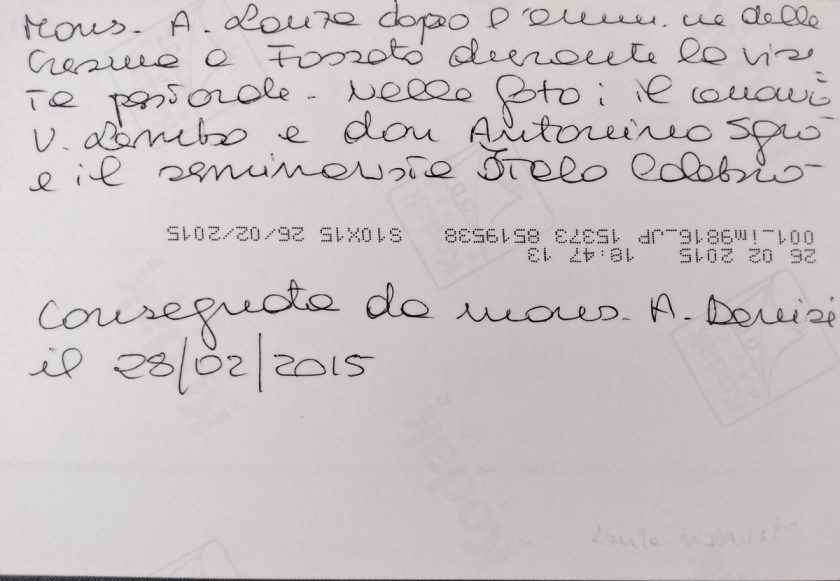 Mons. A. Lanza dopo l'amm.ne delle
Cresime a Fossato durante la visi
ta pastorale. Nella foto: il canonico
V. Lembo e don Antonino Sgrò
e il seminarista Italo Calabrò
26 02 2015 18:47 13
001_im9816_JP 15373 8519538 S10X15 26/02/2015
Consegnata da mons. A. Denisi
il 28/02/2015
Kodak
Kodak
Kodak